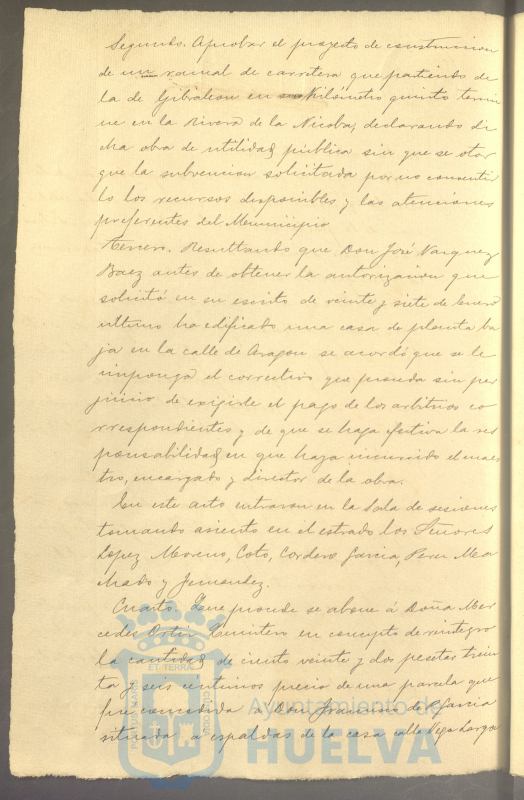 Segundo. Aprobar el proyecto de construccion
de un ramal de carretera que partiendo de
la de Gibraleon en su Kilometro quinto termi
ne en la Rivera de la Nicoba, declarando di
cha obra de utilidad pública sin que se otor
gue la subvencion solicitada por no consentir
lo los recursos disponibles y las atenciones
preferentes del Municipio
Tercero. Resultando que Don José Vazquez
Baez antes de obtener la autorizacion que
solicitó en su escrito de veinte y siete de Enero
ultimo ha edificado una casa de planta ba
ja en la calle de Aragon se acordó que se le
imponga el correctivo que proceda sin per
juicio de exigirle el pago de los arbitrios co
rrespondientes y de que se haga efectiva la res
ponsabilidad en que haya incurrido el maes
tro, encargado y director de la obra.
En este acto entraron en la Sala de sesiones
tomando asiento en el estrado los Señores
Lopez Moreno, Coto, Cordero Garcia, Perez Ma
chado y Fernandez.
Cuarto. Que procede se abone á Doña Mer
cedes Ortiz Quintero en concepto de reintegro
la cantidad de ciento veinte y dos pesetas trein
ta y seis centimos precio de una parcela que
fue concedida a Don Francisco de Garcia
situada a espaldas de la casa calle Vega Larga
PORTUS MARIS
ET TERRÆ
CUSTODIA
Ayuntamiento de
HUELVA